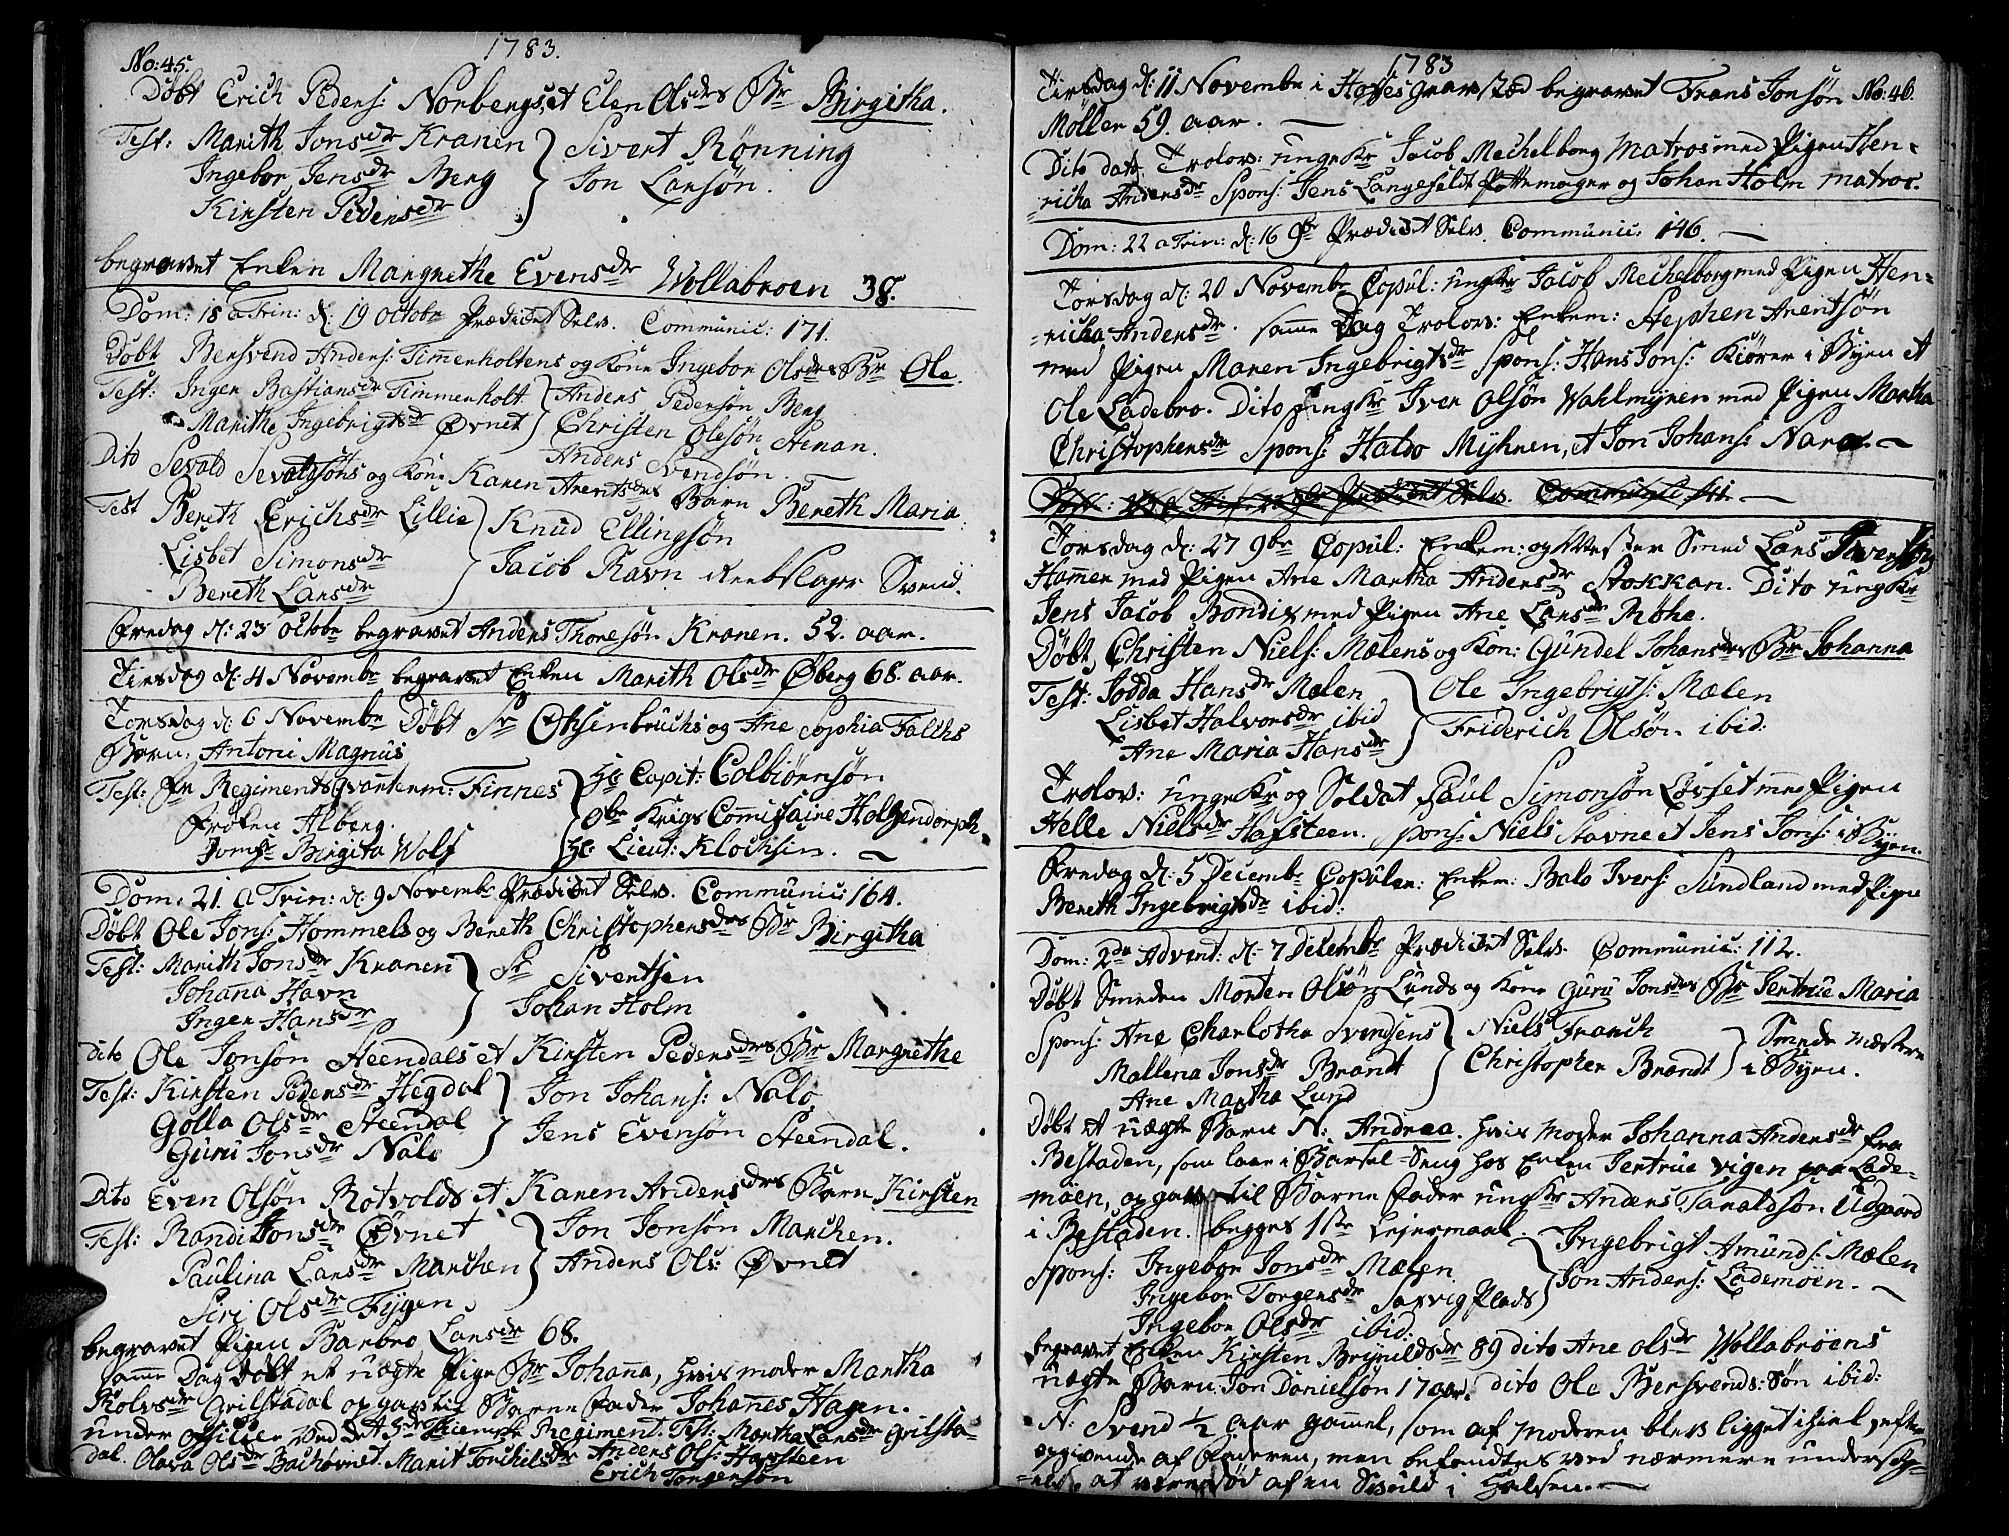 No: 45.
1783.
Døbt Erich Peders: Norbergs, et Elen Olsdrs Br Birgitha.
Test: Marith Jonsdr Kranen
Ingebor Jensdr Berg
Kirsten Pedersdr
Sivert Rønning
Jon Larsøn.
begravet Enken Margrethe Evensdr Wollabroen 38.
Dom: 18 a Trin: d: 19 Octobr Prædicet Selv. Communic: 171.
Døbt Bersvend Anders: Timerholtens og Kone Ingebor Olsdrs Br Ole.
Test: Inger Bastiansdr Timmerholt
Marithe Ingebrigtsdr Øvnet
Anders Pedersøn Berg
Christen Olesøn Stenan.
Anders Svendsøn.
Dito Sevald Sevaldsøns og Kone Karen Arentsdrs Barn Bereth Maria.
Test Bereth Erichsdr Lillie
Lisbet Simonsdr
Bereth Larsdr
Knud Ellingsøn
Jacob Ravn Reebslager Svend.
Fredag d: 23 Octobr begravet Anders Thoresøn Kranen. 52. aar.
Tirsdag d: 4 Novembr begravet Enken Marith Olsdr Øberg 68. aar.
Torsdag d: 6 Novembr Døbt Sr Otsenbruchs og Ane Sophia Falchs
Barn: Antoni Magnus
Test: Fr Regiments Qvarterm: Finnes
Frøken Alberg.
Jomfr Birgita Wolf
Hr Capit: Colbiørnsøn
Obr Krigs Commissaire Holzendorph
Hr Lieut: Klochsin.
Dom: 21. a Trin: d: 9 Novembr Prædicet Selv. Communic: 164.
Døbt Ole Jons: Hommels og Bereth Christophersdrs Br Birgitha
Test: Marith Jonsdr Kranen
Johana Havn
Inger Hansdr
Sr Sivertsen
Johan Holm
dito Ole Jonsøn Steendals et Kirsten Pedersdrs Br Margrethe
Test: Kirsten Pedersdr Hegdal
Golla Olsdr Steendal
Guru Jonsdr Nalo
Jon Johans: Nalo
Jens Evensøn Steendal.
Dito Even Olsøn Rotvolds et Karen Andersdrs Barn Kirsten
Test: Randi Jonsdr Øvnet
Paulina Larsdr Marchen
Siri Olsdr Fygen
Jon Jonsøn Marchen.
Anders Ols: Øvnet
begravet Pigen Barbro Larsdr 68.
samme Dag døbt et uægte Pige Br Johana, hvis moder Martha
Rolvsdr Grilstadal opgav til Barne Fader Johanes Hagen.
under Officeer ved det 3die Regiment. Test: Martha Larsdr Grilsta-
dal. Olava Olsdr Bachøvnet. Marit Torchelsdr Anders Ols: Harsteen
Erich Torgersøn
1783
No: 46.
Tirsdag d: 11 Novembr i Høyes Gravsted begravet Frans Jonsøn
Møller 59. aar.
Dito dato Trolov: ungeKr Jacob Mechelborg Matros med Pigen Hen-
richa Andersdr Spons: Jens Langefeldt Pottemager og Johan Holm matros.
Dom: 22 a Trin: d: 16 9br Prædicet Selv. Communic: 146.
Torsdag d: 20 Novembr Copul: ungKr Jacob Mechelborg med Pigen Hen-
richa Andersdr. samme Dag Trolov: Enkem: Stephen Arentsøn
med Pigen Maren Ingebrigtsdr Spons: Hans Jons: Kiører i Byen et
Ole Ladebro. Dito ungKr Iver Olsøn Wahlmyren med Pigen Martha
Christophersdr Spons: Haldo Myhren, et Jon Johans: Narø.
Torsdag d: 27 9br Copul: Enkem: og Mester Smed Lars
Hammer med Pigen Ane Martha Andersdr Stokkan. Dito ungKr
Jens Jacob Bondix med Pigen Ane Larsdr Røhe.
Døbt Christen Niels: Mælens og Kon: Gundel Johansdrs Br Johanna
Test: Jodda Hansdr Mælen
Lisbet Halvorsdr ibid
Ane Maria Hansdr
Ole Ingebrigts: Mælen
Friderich Olsøn ibid:
Trolov: ungeKr og Soldat Paul Simonsøn Løvset med Pigen
Helle Nielsdr Hafsteen. Spons: Niels Stavne et Jens Jons: i Byen.
Fredag d: 5 Decembr Copuler: Enkem: Balo Ivers: Sundland med Pige
Bereth Ingebrigtsdr ibid:
Dom: 2da Advent: d: 7 Decembr Prædicet Selv. Communic: 112.
Døbt Smeden Morten Olsøn Lunds og Kone Guru Jonsdrs Br Jertrue Maria
Spons: Ane Charlotha Svendsens
Mallena Jonsdr Brandt
Ane Martha Lund
Niels Franch
Christopher Brandt
Smede mestere
i Byen.
Døbt et uægte Barn N: Andrea. hvis moder Johanna Andersdr fra
Bestaden, som laae i Barsel-Seng hos Enken Jertrue vigen paa Lade-
moen, opgav til Barne Fader ungKr Anders Taraldsøn Udgaard
i Bestaden. begges 1ste Lejermaal.
Spons: Ingebor Jonsdr Mælen
Ingebor Torgersdr Saxvig Plads
Ingebor Olsdr ibid.
Ingebrigt Amunds: Mælen
Jon Anders: Lademoen.
begravet Enken Kirsten Brynildsdr 89 dito Ane Olsdr Wollabroens
uægte Barn Jon Danielsøn 17 aar. dito Ole Bersvends: Søn ibid:
N: Svend 1/2 aar gammel, som af Moderen blev ligget ihiel, efter
opgivende af Faderen, men befandtes ved nærmere undersøg-
else, at være død af en Byld i Halsen.